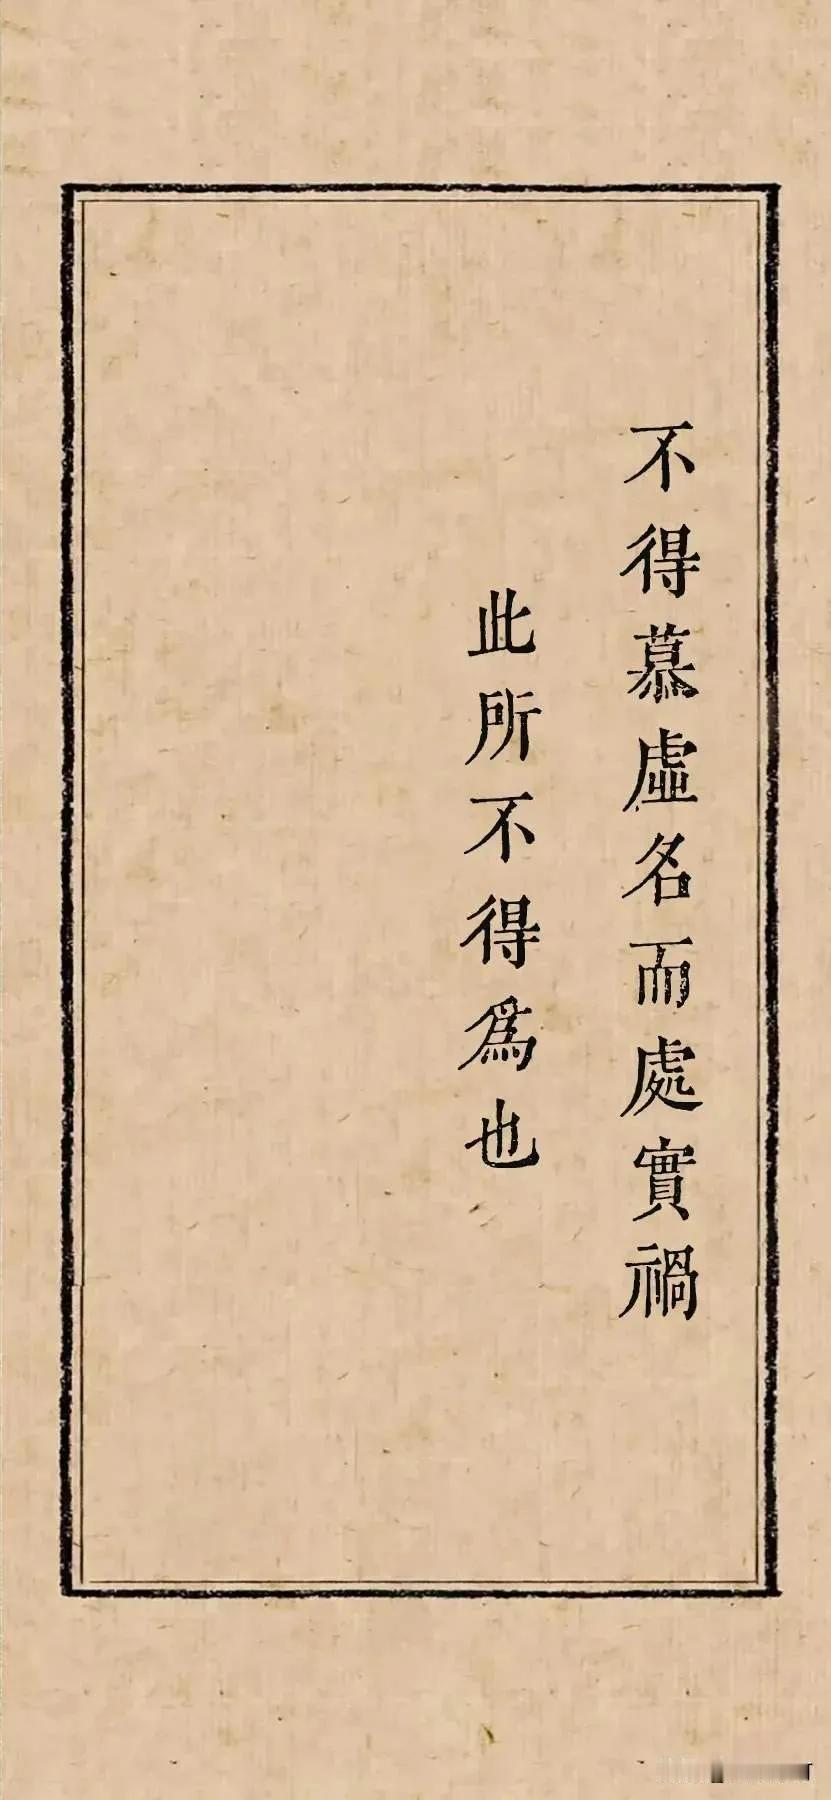 不得慕虛名而處實禍
此所不得爲也